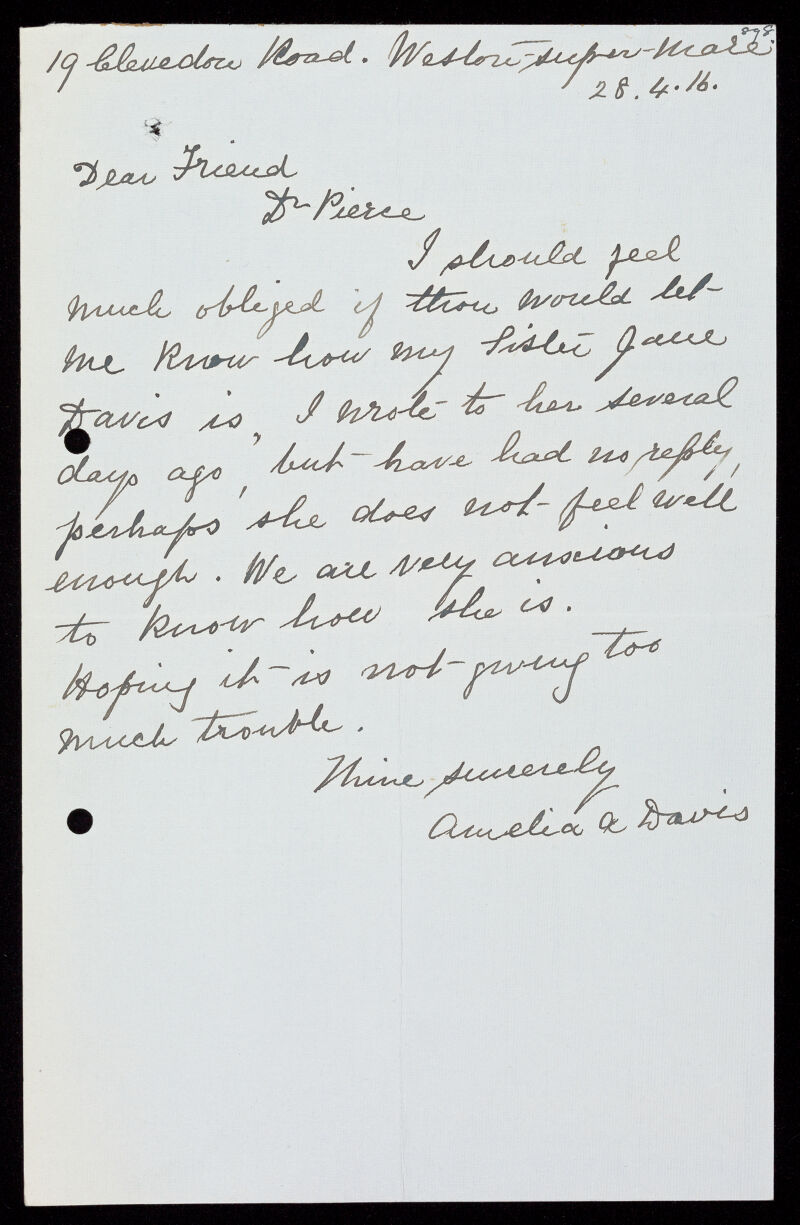 898
19 Clevedon Road. Weston-super-Mare.
28.4.16.
Dear Friend
Dr Pierce
I should feel
much obliged if thou would let
me know how my Sister Jane
Davis is, I wrote to her several
days ago, but have had no reply,
perhaps she does not feel well
enough. We are very anxious
to know how she is.
Hoping it is not giving too
much trouble.
Thine sincerely
Amelia A Davis